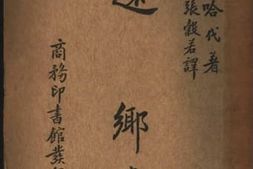 哈代著
張穀若譯
還鄉
商務印書館發